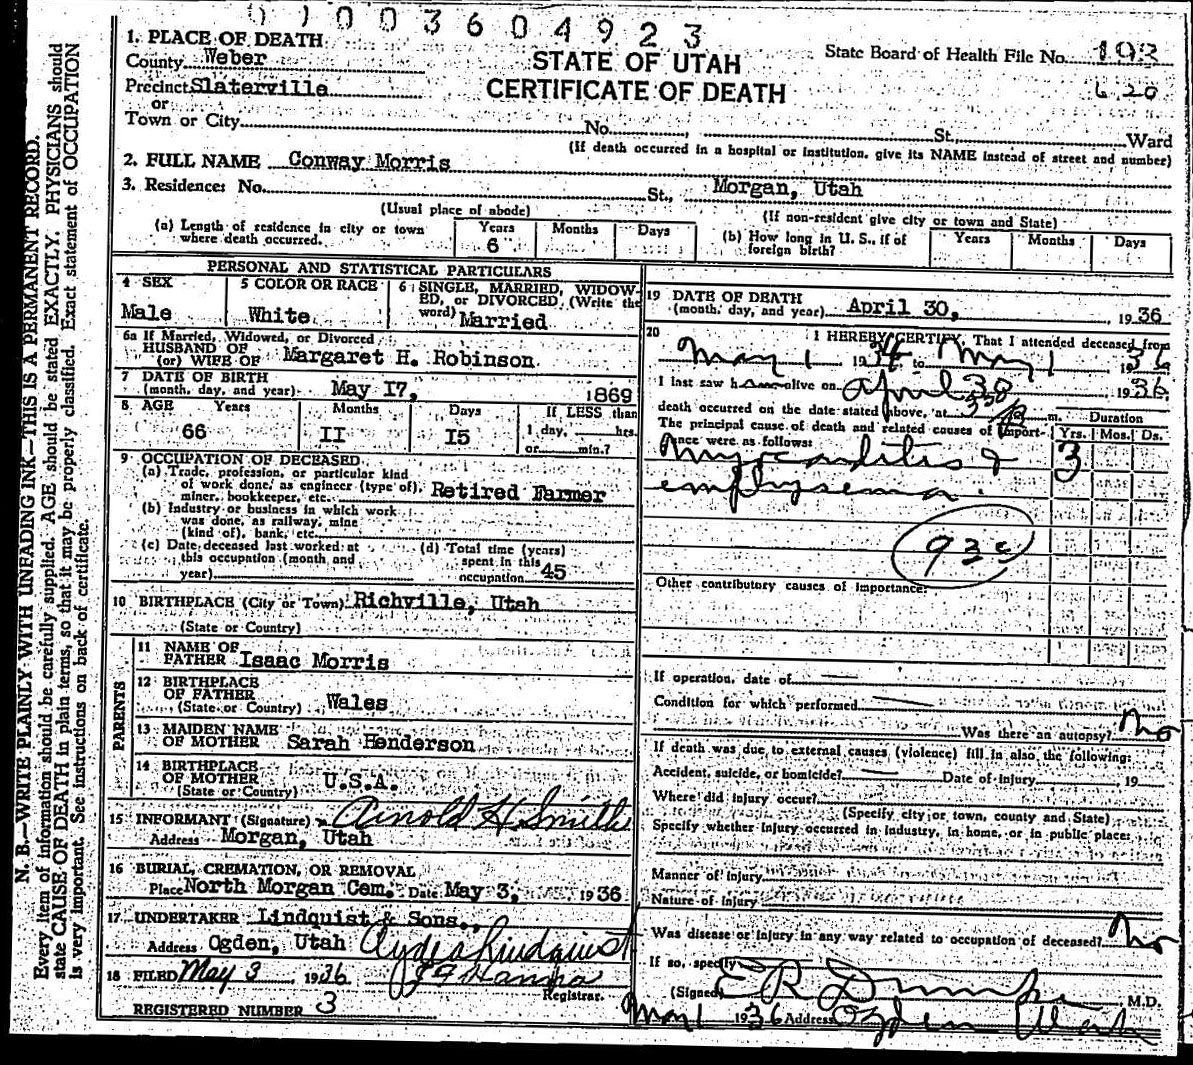 01003604923
1. PLACE OF DEATH
County Weber
Precinct Slaterville
or
Town or City No. St. Ward
STATE OF UTAH
CERTIFICATE OF DEATH
State Board of Health File No. 193
620
(If death occurred in a hospital or institution, give its NAME instead of street and number)
2. FULL NAME Conway Morris
3. Residence: No. St., Morgan, Utah
(Usual place of abode) (If non-resident give city or town and State)
(a) Length of residence in city or town where death occurred. Years 6 Months Days
(b) How long in U. S., if of foreign birth? Years Months Days
PERSONAL AND STATISTICAL PARTICULARS
4 SEX
Male
5 COLOR OR RACE
White
6 SINGLE, MARRIED, WIDOW-
ED, or DIVORCED (Write the
word) Married
6a If Married, Widowed, or Divorced
HUSBAND OF
(or) WIFE OF Margaret H. Robinson
7 DATE OF BIRTH
(month, day, and year) May I7, 1869
8 AGE Years Months Days If LESS than
66 II I5 1 day, hrs.
or min.?
9 OCCUPATION OF DECEASED
(a) Trade, profession, or particular kind
of work done, as engineer (type of),
miner, bookkeeper, etc. Retired Farmer
(b) Industry or business in which work
was done, as railway, mine
(kind of), bank, etc.
(c) Date deceased last worked at
this occupation (month and
year)
(d) Total time (years)
spent in this
occupation 45
10 BIRTHPLACE (City or Town) Richville, Utah
(State or Country)
PARENTS
11 NAME OF
FATHER Isaac Morris
12 BIRTHPLACE
OF FATHER
(State or Country) Wales
13 MAIDEN NAME
OF MOTHER Sarah Henderson
14 BIRTHPLACE
OF MOTHER
(State or Country) U.S.A.
15 INFORMANT (Signature) Arnold H Smith
Address Morgan, Utah
16 BURIAL, CREMATION, OR REMOVAL
Place North Morgan Cem. Date May 3, 1936
17 UNDERTAKER Lindquist & Sons.,
Address Ogden, Utah Clyde Lindquist
18 FILED May 3 1936
Registrar.
REGISTERED NUMBER 3
19 DATE OF DEATH
(month, day, and year) April 30, 1936
20 I HEREBY CERTIFY, That I attended deceased from
May 1 19 to May 1 1936
I last saw h alive on April 30 1936
death occurred on the date stated above, at m.
The principal cause of death and related causes of import-
ance were as follows:
Duration
Yrs. Mos. Ds.
Myocarditis & 3
emphysema.
93c
Other contributory causes of importance:
If operation, date of
Condition for which performed
Was there an autopsy? No
If death was due to external causes (violence) fill in also the following:
Accident, suicide, or homicide? Date of injury 19
Where did injury occur?
(Specify city or town, county and State)
Specify whether injury occurred in industry, in home, or in public place:
Manner of injury
Nature of injury
Was disease or injury in any way related to occupation of deceased? No
If so, specify
(Signed) E R Dumke M.D.
May 1 1936 Address Ogden Utah
N. B.—WRITE PLAINLY WITH UNFADING INK—THIS IS A PERMANENT RECORD.
Every item of information should be carefully supplied. AGE should be stated EXACTLY. PHYSICIANS should
state CAUSE OF DEATH in plain terms, so that it may be properly classified. Exact statement of OCCUPATION
is very important. See instructions on back of certificate.